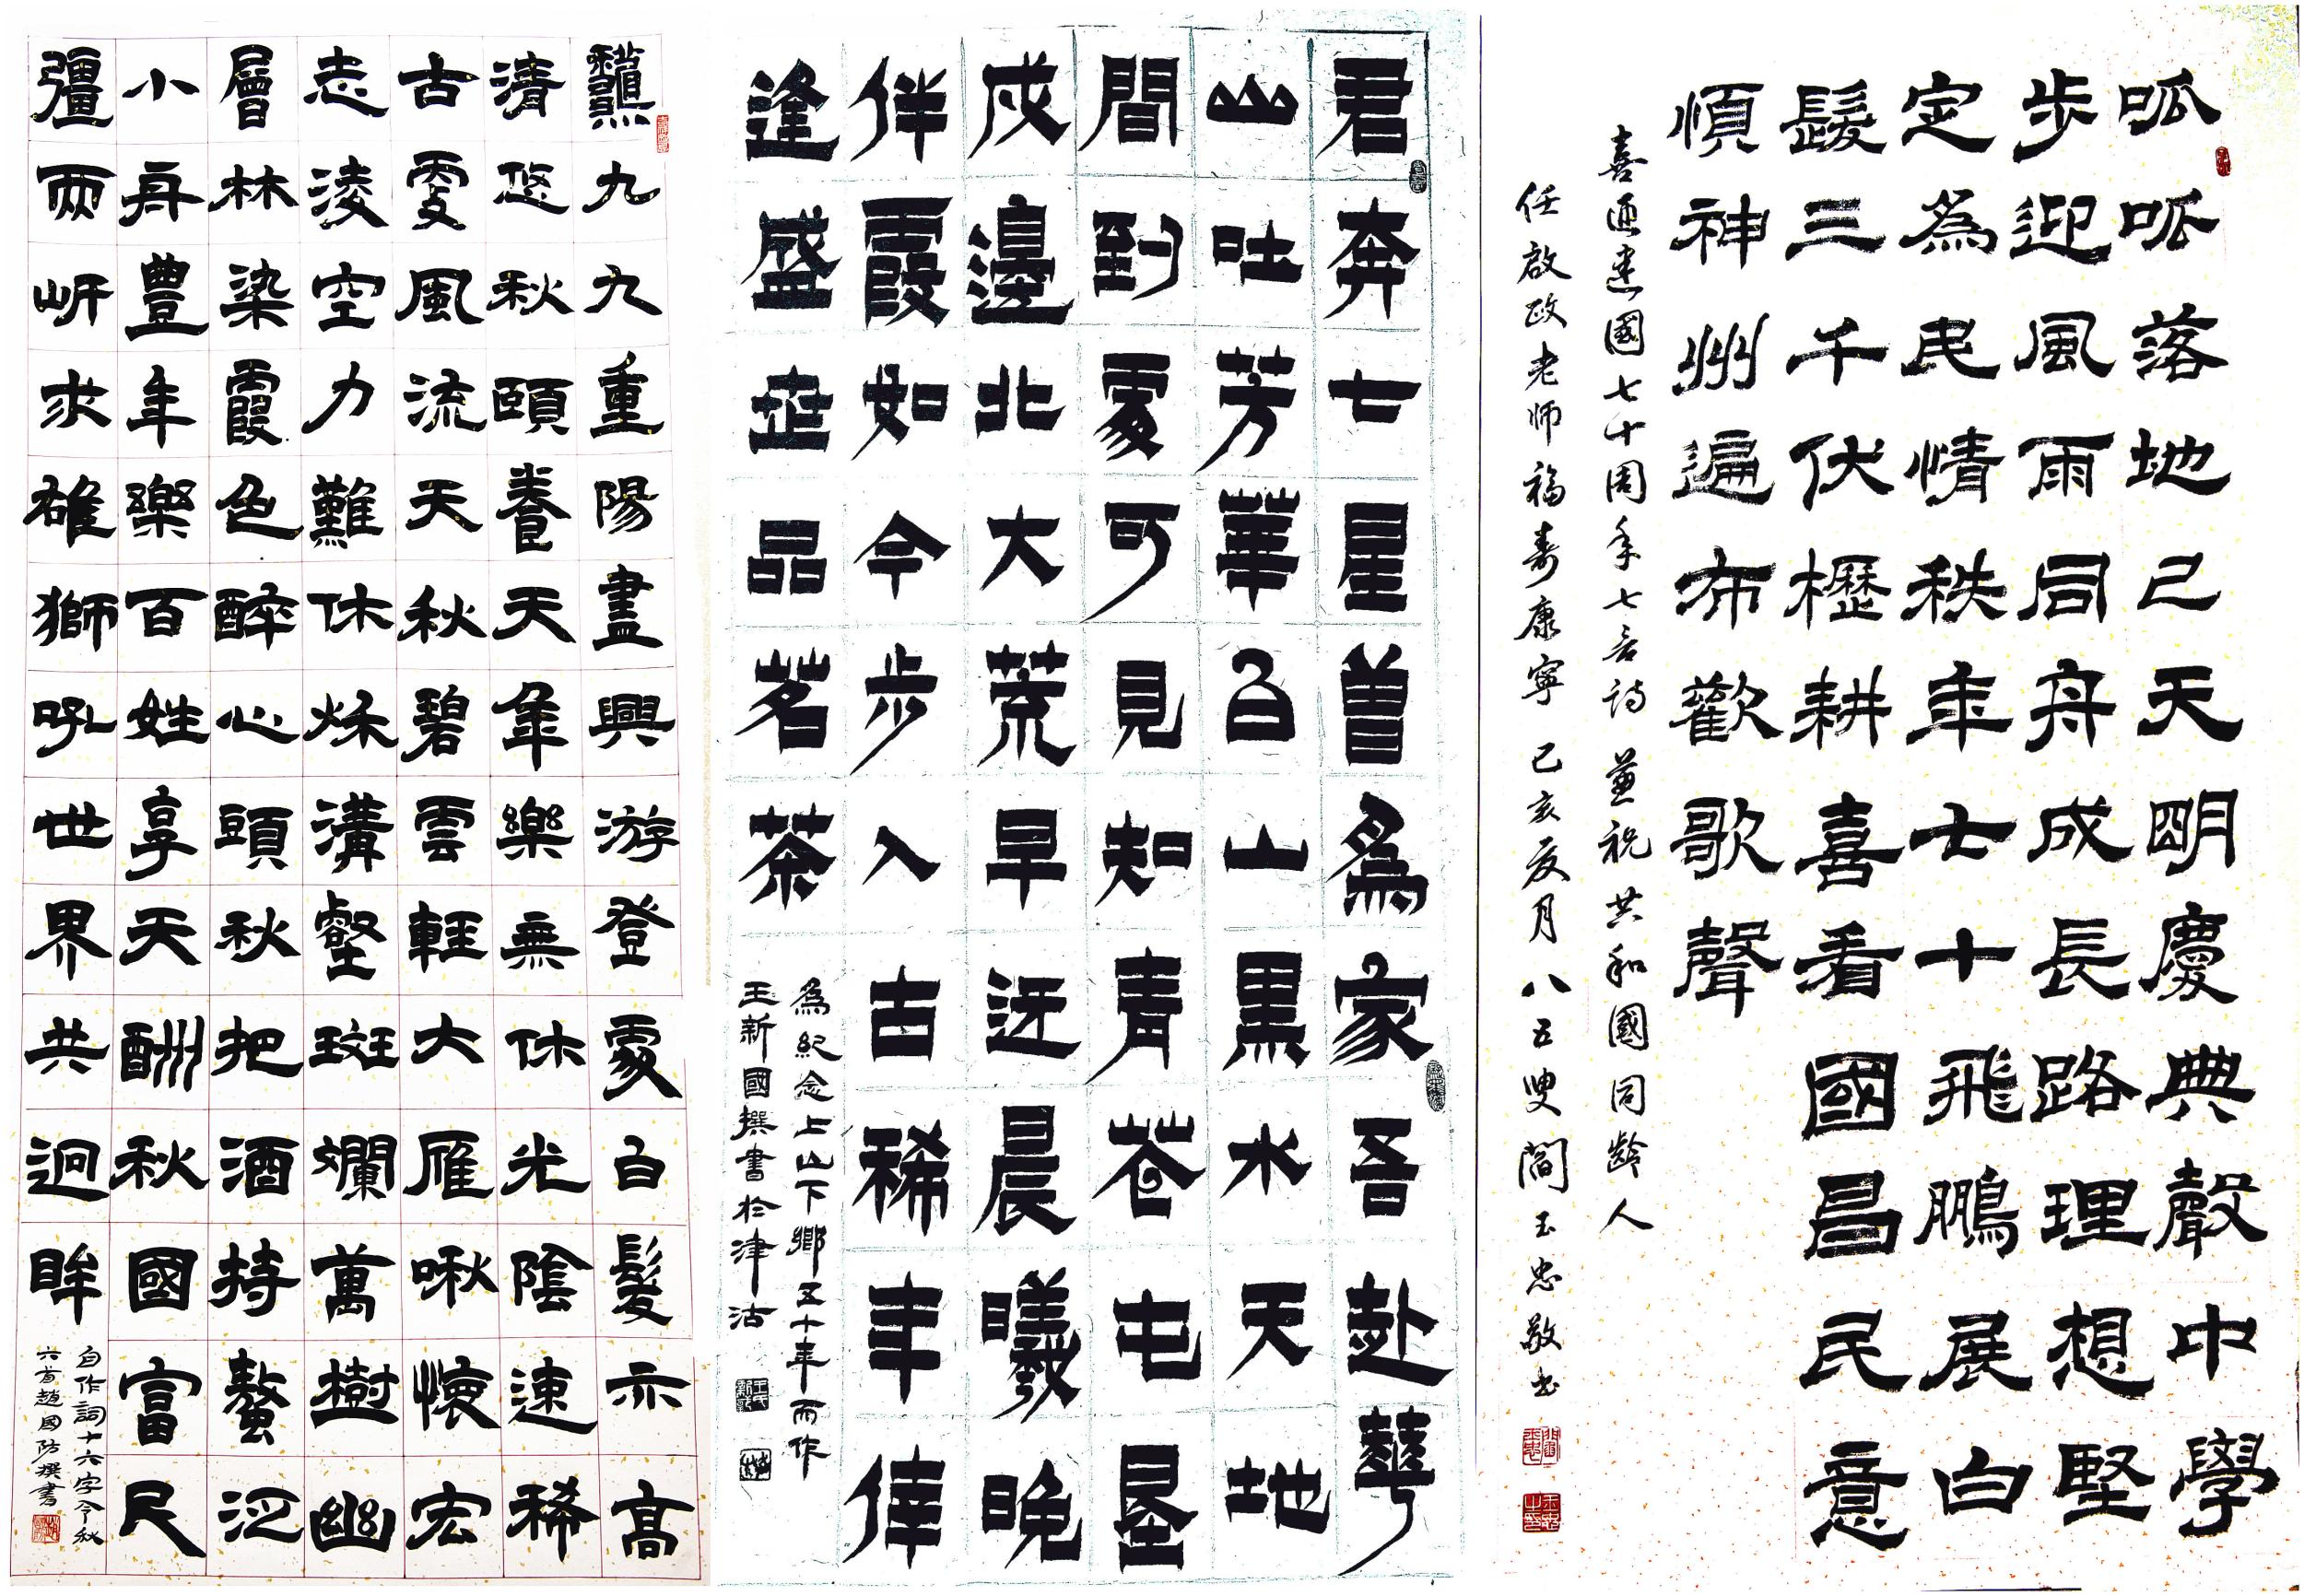 呱呱落地已天明慶典聲中學
步迎風雨同舟成長路理想堅
定為民情秩年七十飛鵬展白
髮三千伏櫪耕喜看國昌民意
順神州遍布歡歌聲
喜迎建國七十周年七言诗兼祝共和國同龄人
任啟政老师福寿康寧 己亥夏月八五叟閻玉忠敬书
君奔七星曾為家吾赴華
山吐芳華白山黑水天地
間到處可見知青苍屯墾
戍邊北大荒早迓晨曦晚
伴霞如今步入古稀年倖
逢盛世品茗茶
為紀念上山下鄉五十年而作
王新國撰書於津沽
龝九九重陽盡興游登處白髮亦高
清悠秋頤養天年樂無休光陰速稀
古處風流天秋碧雲輕大雁啾懷宏
志淩空力難休秌溝壑斑斕萬樹幽
層林染霞色醉心頭秋把酒持螯泛
小舟豐年樂百姓享天酬秋國富民
彊兩岍求雄獅吼世界共迴眸
自作詞十六字令秋
六首趙國防撰書